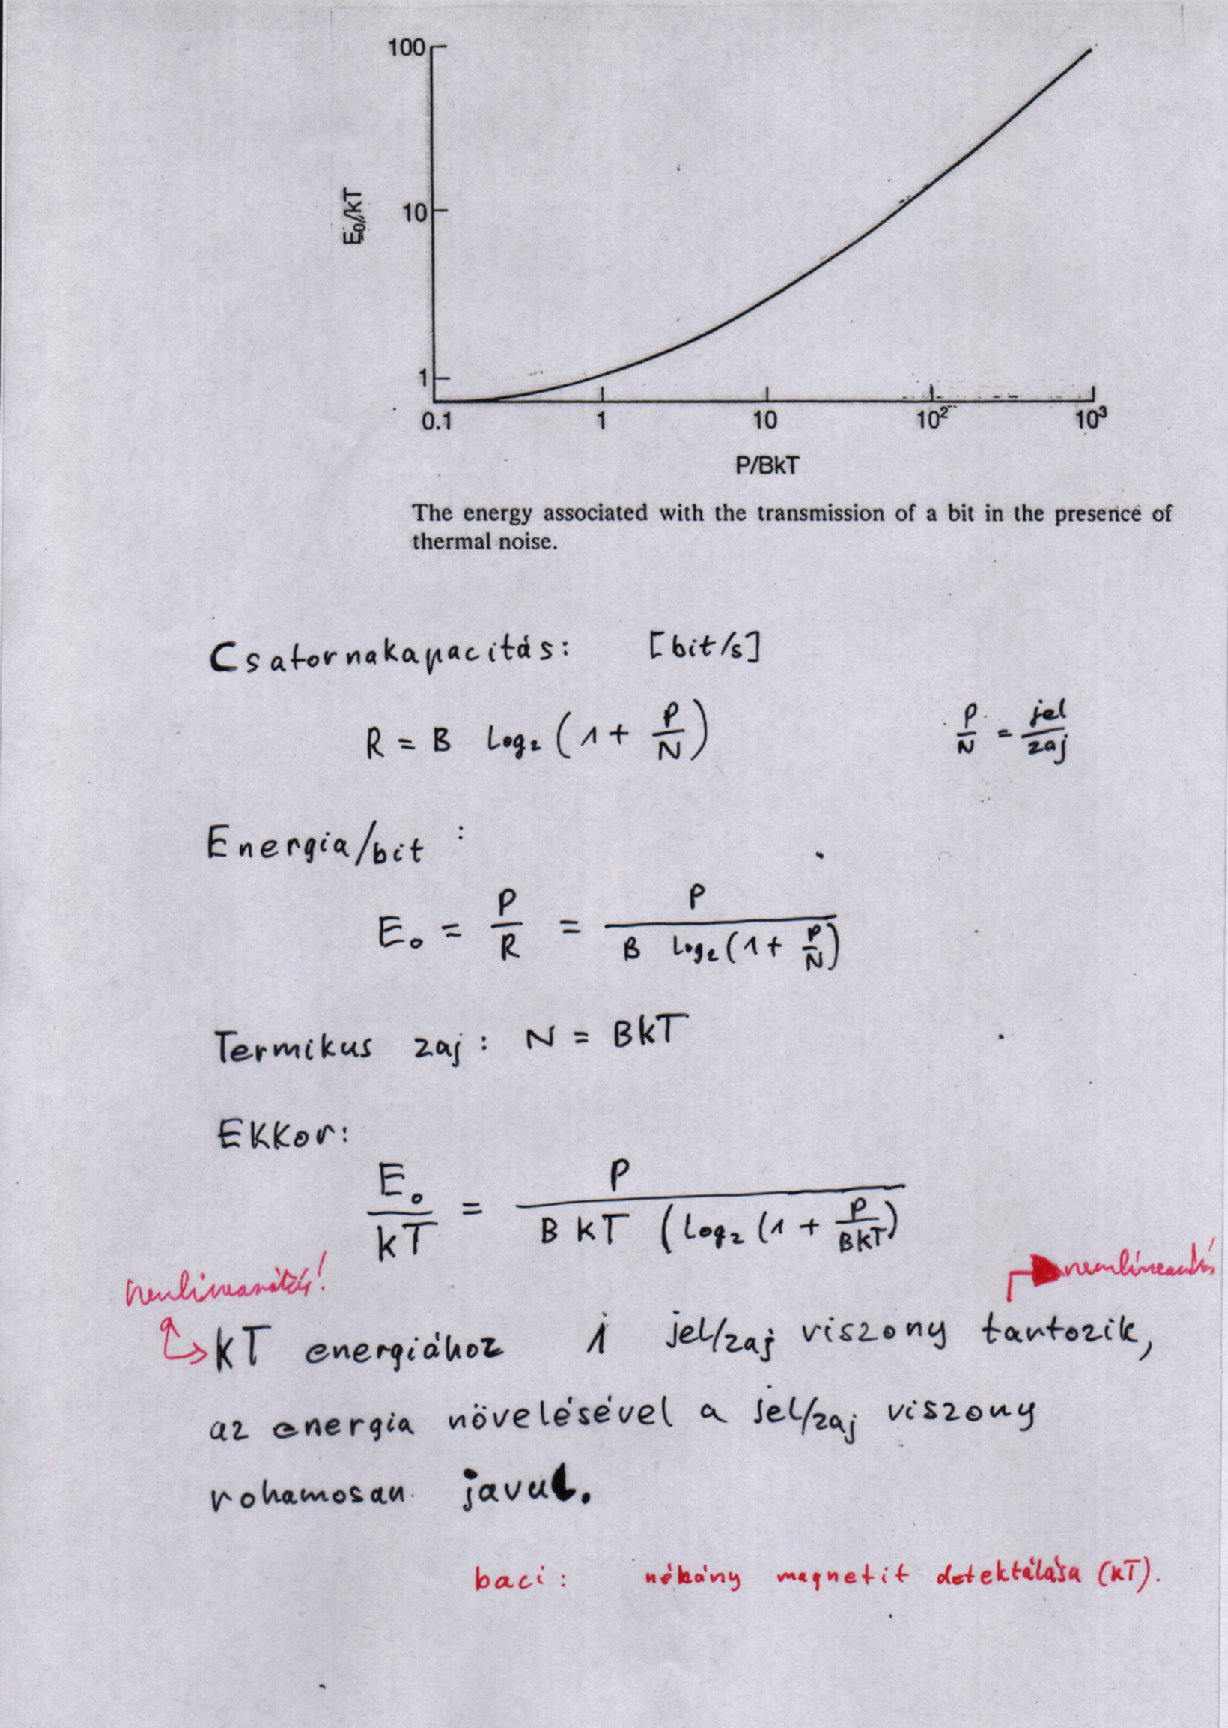 100
10
1
E₀/kT
0.1 1 10 10² 10³
P/BkT
The energy associated with the transmission of a bit in the presence of
thermal noise.
Csatornakapacitás: [bit/s]
R = B log₂ (1 + P/N) P/N = jel/zaj
Energia/bit :
E₀ = P/R = P / B log₂(1 + P/N)
Termikus zaj: N = BkT
Ekkor:
E₀/kT = P / B kT (log₂ (1 + P/BkT)
nemlinearitás! nemlinearitás
kT energiához 1 jel/zaj viszony tartozik,
az energia növelésével a jel/zaj viszony
rohamosan javul.
baci: néhány magnetit detektálása (kT).